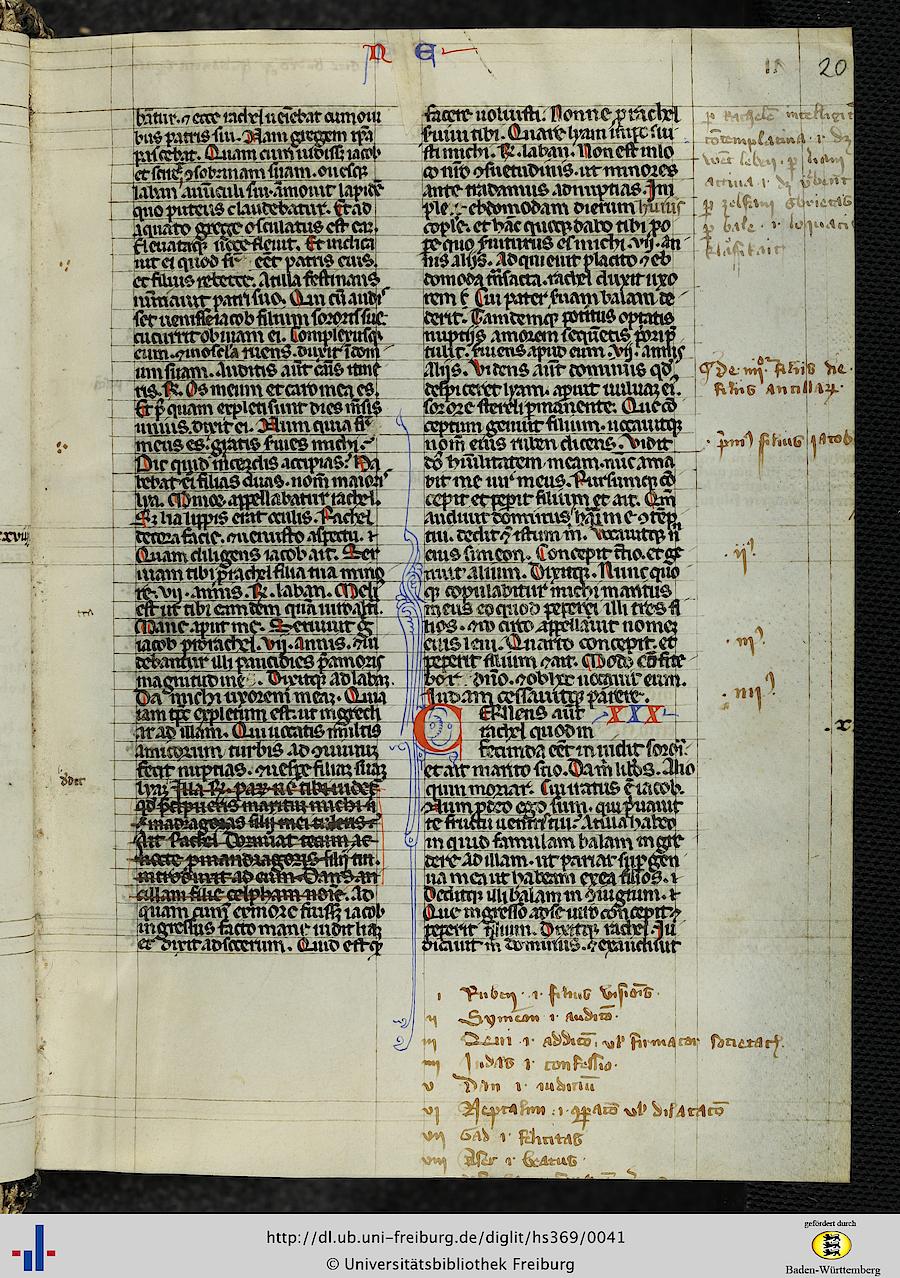 N E
20
batur. et ecce rachel ueniebat cum oui
bus patris sui. Nam gregem ipa
pascebat. Quam cum uidisset iacob
et sciret consobrinam suam. ouesque
laban auunculi sui. amouit lapidem
quo puteus claudebatur. Et ad
aquato grege osculatus est eam.
Eleuataque uoce fleuit. Et indica
uit ei quod fr eet patris eius.
et filius rebecce. At illa festinans
nuntiauit patri suo. Qui cu audis
set uenisse iacob filium sororis sue.
cucurrit obuiam ei. Complexusque
eum. et in oscula ruens. duxit in dom
um suam. Auditis aut causis itine
ris. R. Os meum et caro mea es.
Et pquam expleti sunt dies mensis
unius. dixit ei. Num quia fr
meus es. gratis seruies michi.
Dic quid mercedis accipias. Ha
bebat ei filias duas. nom maioris
lya. Minor appellabatur rachel.
Sz lia lippis erat oculis. Rachel
decora facie. et uenusto aspectu.
Quam diligens iacob ait. Ser
uiam tibi p rachel filia tua mino
re. vii. annis. R. laban. Meli
est ut tibi eam dem qua uiro alti.
Mane aput me. Seruiuit g
iacob p rachel. vii. annis. et ui
debantur illi pauci dies p amoris
magnitudine. Dixitque ad laban.
Da michi uxorem meam. Quia
iam tps expletum est. ut ingredi
ar ad illam. Qui uocatis multis
amicorum turbis ad conuiuium
fecit nuptias. et uespe filiam suam
lyam
illa R. parum ne tibi uidetur
qd preripueris maritum michi n
et madragoras filij mei tuleris.
Ait Rachel. Dormiat tecum ac
nocte p mandragoris filij tui.
introduxit ad eum. Dans an
cillam filie celpham noie. Ad
quam cum ex more fuisset iacob
ingressus facto mane uidit liam
et dixit ad socerum. Quid est quod
facere uoluisti. Nonne p rachel
seruiui tibi. Quare lyam imposui
sti michi. R. laban. Non est in lo
co nro consuetudinis. ut minores
ante tradamus ad nuptias. Im
ple ebdomodam dierum huius
copule. et hanc quoque dabo tibi po
pe quo seruiturus es michi. vii. an
nis aliis. Adquieuit placito et eb
domoda transacta. rachel duxit uxo
rem. Cui pater seruam balam de
derit. Tandemque potitus optatis
nuptijs amorem sequentis priori p
tulit. seruiens apud eum. vij. annis
alijs. Videns aut dominus qd
despiceret lyam. aperuit uuluam ei.
sorore sterili pmanente. Que con
ceptum genuit filium. uocauitque
nom eius ruben dicens. Vidit
dns humilitatem meam. nunc ama
bit me uir meus. Rursumque con
cepit et peperit filium et ait. Qm
audiuit dominus haberi me contep
tui. dedit et istum m. Vocauitque n
eius simeon. Concepit tercio. et ge
nuit alium. Dixitque. Nunc quo
que copulabitur michi maritus
meus eo quod peperi illi tres fi
lios. et icirco appellauit nomen
eius leui. Quarto concepit. et
peperit filium et ait. Modo confite
bor dno. et ob hoc uocauit eum.
Iudam cessauitque parere.
CErnens aut XXX
rachel quod in
fecunda eet inuidit sorori.
et ait marito suo. Da m libos. Alio
quin moriar. Cui iratus r iacob.
Num p deo ego sum. qui priuauit
te fructu uentris tui. At illa habeo
in quid famulam balam ingre
dere ad illam. ut pariat sup gen
ua mea ut habeam ex ea filios.
Deditque illi balam in coniugium.
Que ingresso ad se uiro concepit et
peperit filium. Dixitque rachel. Iu
dicauit m dominus. et exaudiuit
p Rachelē intelligit
cōtemplatiua .i. dz
actiua .i. dz
De iiij filiis de
filiis ancillarum
pm9 filius iacob
ij9
iij9
iiij9
i Ruben .i. filius visiōis.
ii Symeon .i. auditō.
iii Leui .i. additō. ul firmator societatis.
iiii Judas .i. confessio.
v Dan .i. iudiciū
vi Neptalim .i. cōparatō ul dilatatō
vii Gad .i. felicitas
viii Aser .i. beatus.
http://dl.ub.uni-freiburg.de/diglit/hs369/0041
© Universitätsbibliothek Freiburg
gefördert durch
Baden-Württemberg